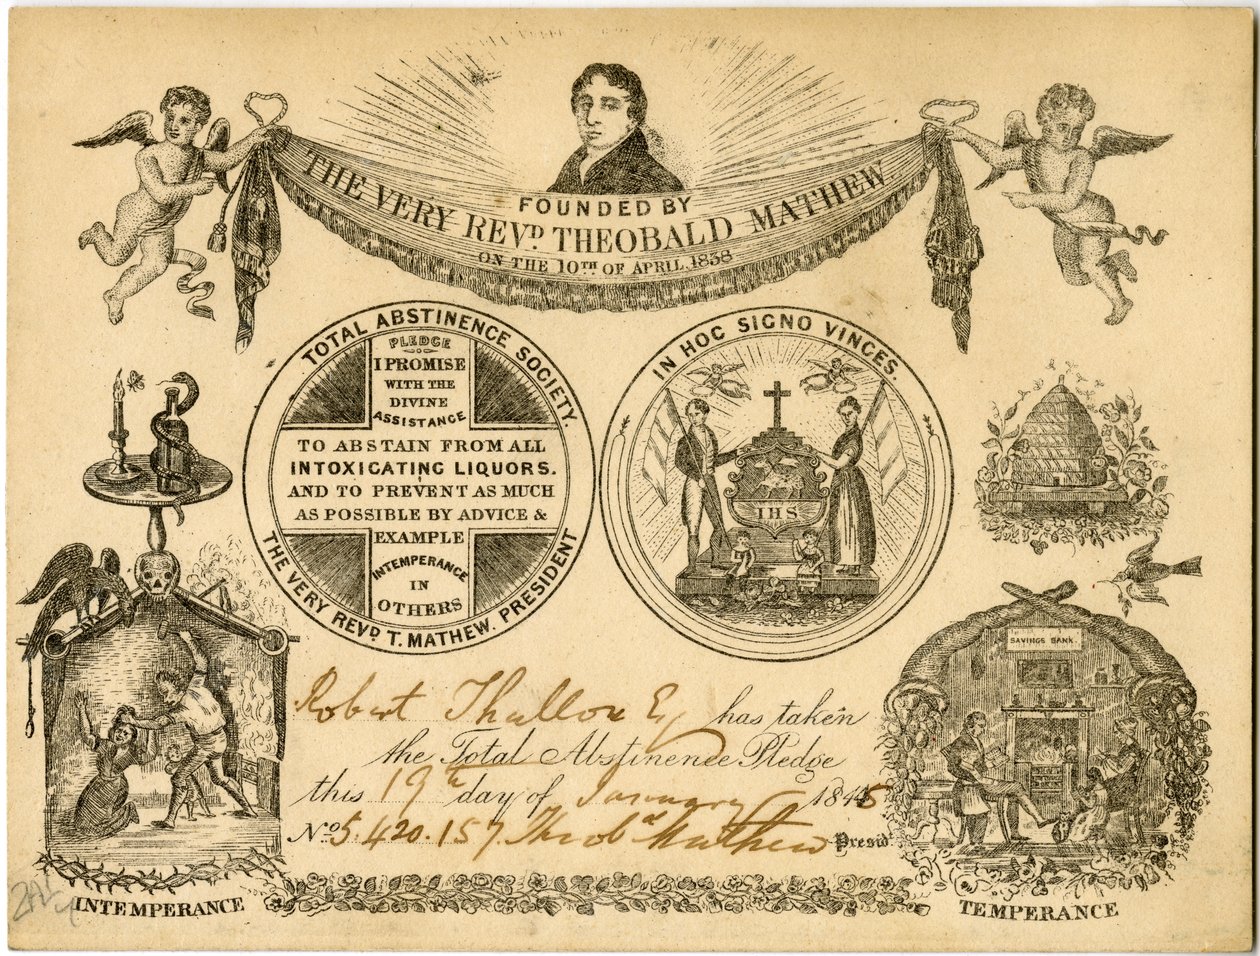 FOUNDED BY
THE VERY REVD. THEOBALD MATHEW
ON THE 10TH OF APRIL, 1838
TOTAL ABSTINENCE SOCIETY.
PLEDGE
I PROMISE
WITH THE
DIVINE
ASSISTANCE
TO ABSTAIN FROM ALL
INTOXICATING LIQUORS.
AND TO PREVENT AS MUCH
AS POSSIBLE BY ADVICE &
EXAMPLE
INTEMPERANCE
IN
OTHERS
THE VERY REVD. T. MATHEW. PRESIDENT
IN HOC SIGNO VINCES.
IHS
SAVINGS BANK.
Robert Thullow Esq has taken
the Total Abstinence Pledge
this 19th day of January 1845
No. 5.420.157. Theobd Mathew Presidt
INTEMPERANCE
TEMPERANCE